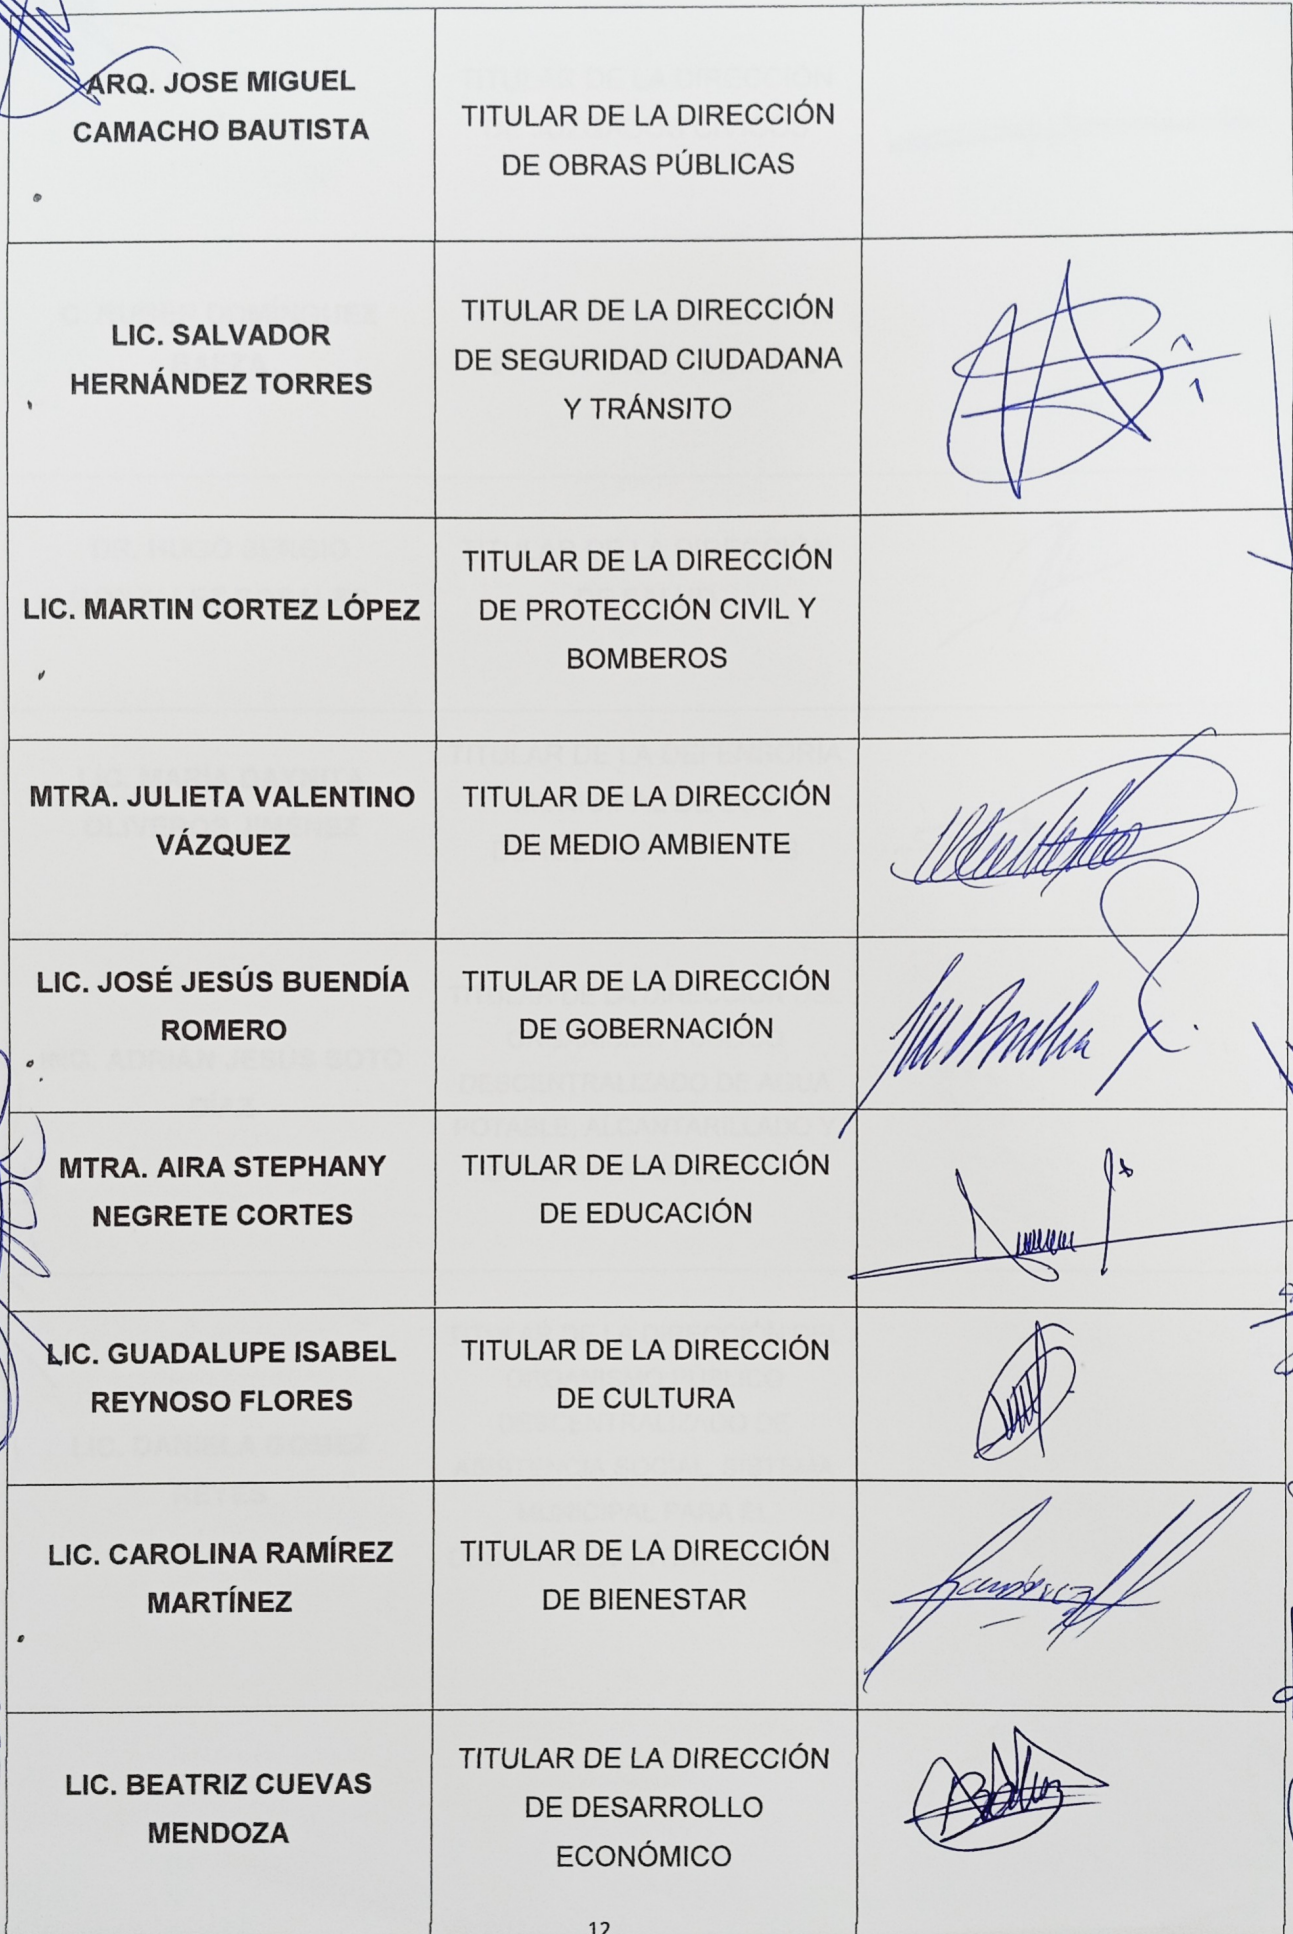 ARQ. JOSE MIGUEL
CAMACHO BAUTISTA
TITULAR DE LA DIRECCIÓN
DE OBRAS PÚBLICAS
LIC. SALVADOR
HERNÁNDEZ TORRES
TITULAR DE LA DIRECCIÓN
DE SEGURIDAD CIUDADANA
Y TRÁNSITO
LIC. MARTIN CORTEZ LÓPEZ
TITULAR DE LA DIRECCIÓN
DE PROTECCIÓN CIVIL Y
BOMBEROS
MTRA. JULIETA VALENTINO
VÁZQUEZ
TITULAR DE LA DIRECCIÓN
DE MEDIO AMBIENTE
LIC. JOSÉ JESÚS BUENDÍA
ROMERO
TITULAR DE LA DIRECCIÓN
DE GOBERNACIÓN
MTRA. AIRA STEPHANY
NEGRETE CORTES
TITULAR DE LA DIRECCIÓN
DE EDUCACIÓN
LIC. GUADALUPE ISABEL
REYNOSO FLORES
TITULAR DE LA DIRECCIÓN
DE CULTURA
LIC. CAROLINA RAMÍREZ
MARTÍNEZ
TITULAR DE LA DIRECCIÓN
DE BIENESTAR
LIC. BEATRIZ CUEVAS
MENDOZA
TITULAR DE LA DIRECCIÓN
DE DESARROLLO
ECONÓMICO
12